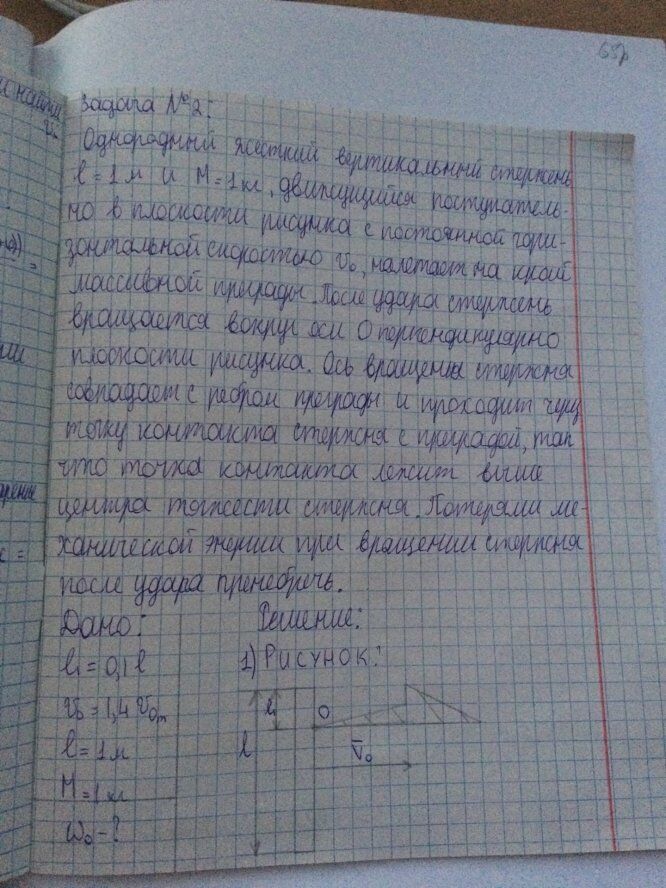 65р
Задача №2:
Однородный жесткий вертикальный стержень
l = 1 м и M = 1 кг, движущийся поступатель-
но в плоскости рисунка с постоянной гори-
зонтальной скоростью v₀, налетает на край
массивной преграды. После удара стержень
вращается вокруг оси O перпендикулярно
плоскости рисунка. Ось вращения стержня
совпадает с ребром преграды и проходит через
точку контакта стержня с преградой, так
что точка контакта лежит выше
центра тяжести стержня. Потерями ме-
ханической энергии при вращении стержня
после удара пренебречь.
Дано:
Решение:
l₁ = 0,1 l
1) Рисунок:
v₀ = 1,4 v₀ₘ
l₁
O
l = 1 м
l
v̅₀
M = 1 кг
ω₀ - ?